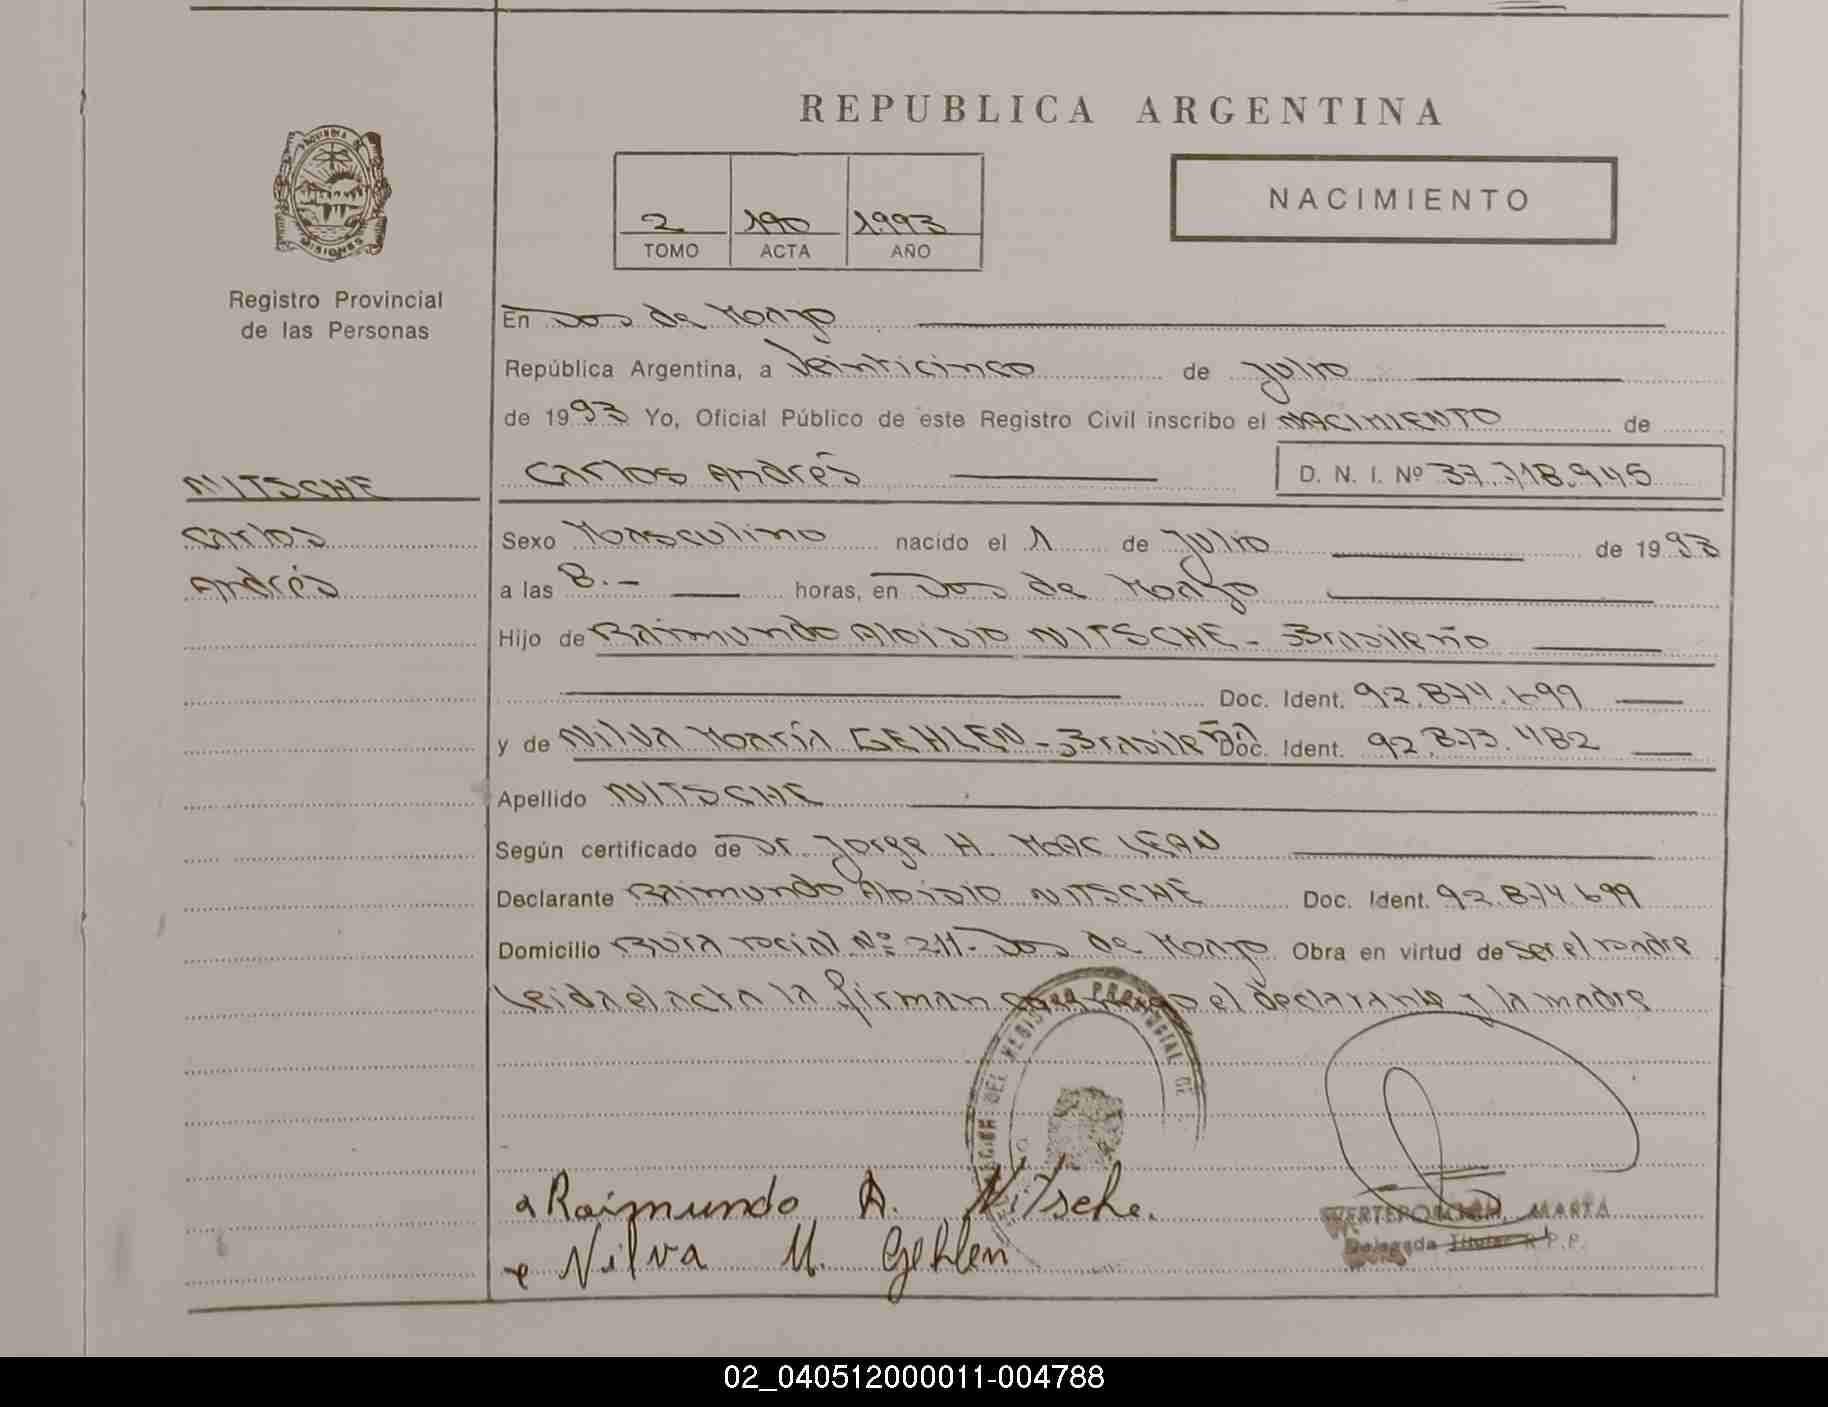 REPUBLICA ARGENTINA
NACIMIENTO
2 190 1993
TOMO ACTA AÑO
MISIONES
Registro Provincial
de las Personas
En Dos de Mayo
República Argentina, a Veinticinco de Julio
de 1993 Yo, Oficial Público de este Registro Civil inscribo el NACIMIENTO de
Carlos Andrés D. N. I. Nº 37.718.945
NITSCHE
Carlos
Andrés
Sexo Masculino nacido el 1 de Julio de 1993
a las 8.- horas, en Dos de Mayo
Hijo de Raimundo Aloisio NITSCHE - Brasileño
Doc. Ident. 92.874.699
y de Nilva María GEHLEN - Brasileña Doc. Ident. 92.873.482
Apellido NITSCHE
Según certificado de Dr. Jorge H. MAC LEAN
Declarante Raimundo Aloisio NITSCHE Doc. Ident. 92.874.699
Domicilio Ruta Nº 211- Dos de Mayo Obra en virtud de ser el padre
Leida el acta la firman conmigo el declarante y la madre
DEL REGISTRO PROVINCIAL DE
Raimundo A. Nitsche.
Nilva M. Gehlen
MARTA
Delegada Titular R.P.P.
02_040512000011-004788